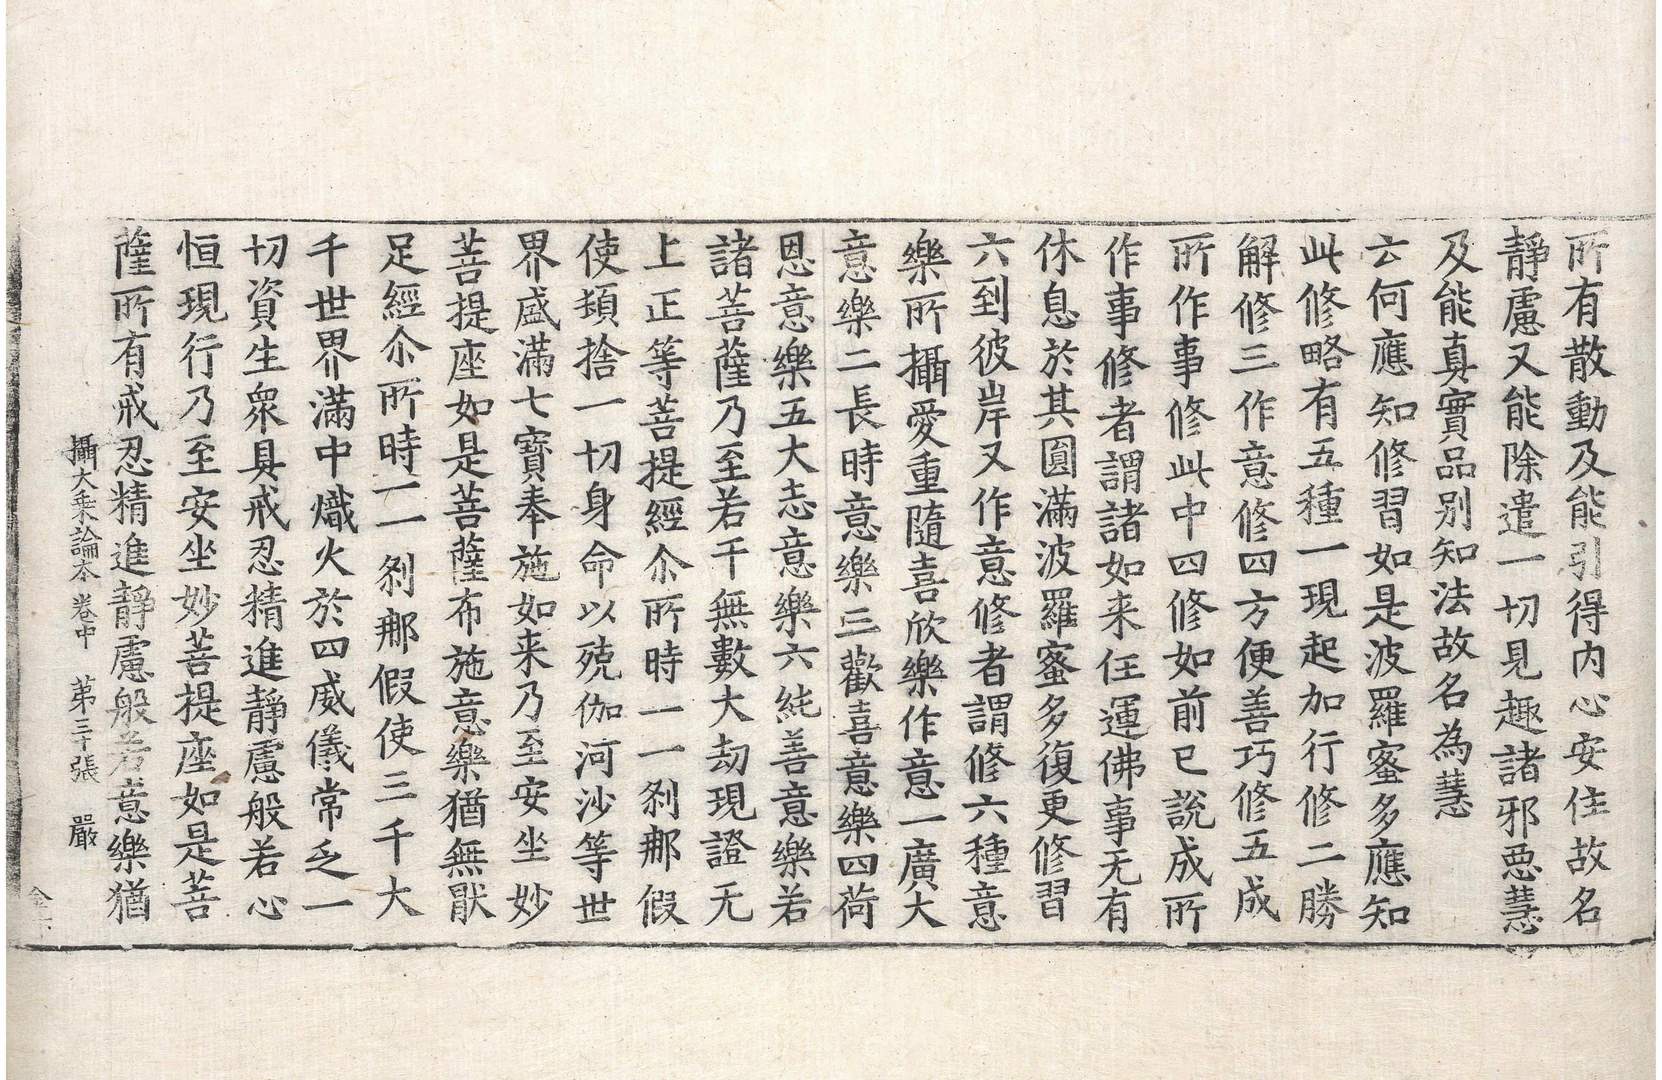 所有散動及能引得内心安住故名
靜慮又能除遣一切見趣諸邪惡慧
及能真實品別知法故名為慧
云何應知修習如是波羅蜜多應知
此修略有五種一現起加行修二勝
解修三作意修四方便善巧修五成
所作事修此中四修如前已說成所
作事修者謂諸如来任運佛事无有
休息於其圓滿波羅蜜多復更修習
六到彼岸又作意修者謂修六種意
樂所攝愛重隨喜欣樂作意一廣大
意樂二長時意樂三歡喜意樂四荷
恩意樂五大志意樂六純善意樂若
諸菩薩乃至若干無數大劫現證无
上正等菩提經尒所時一一刹那假
使頓捨一切身命以殑伽河沙等世
界盛滿七寶奉施如来乃至安坐妙
菩提座如是菩薩布施意樂猶無猒
足經尒所時一一刹那假使三千大
千世界滿中熾火於四威儀常乏一
切資生衆具戒忍精進靜慮般若心
恒現行乃至安坐妙菩提座如是菩
薩所有戒忍精進靜慮般若意樂猶
攝大乗論本卷中 第三十張 嚴